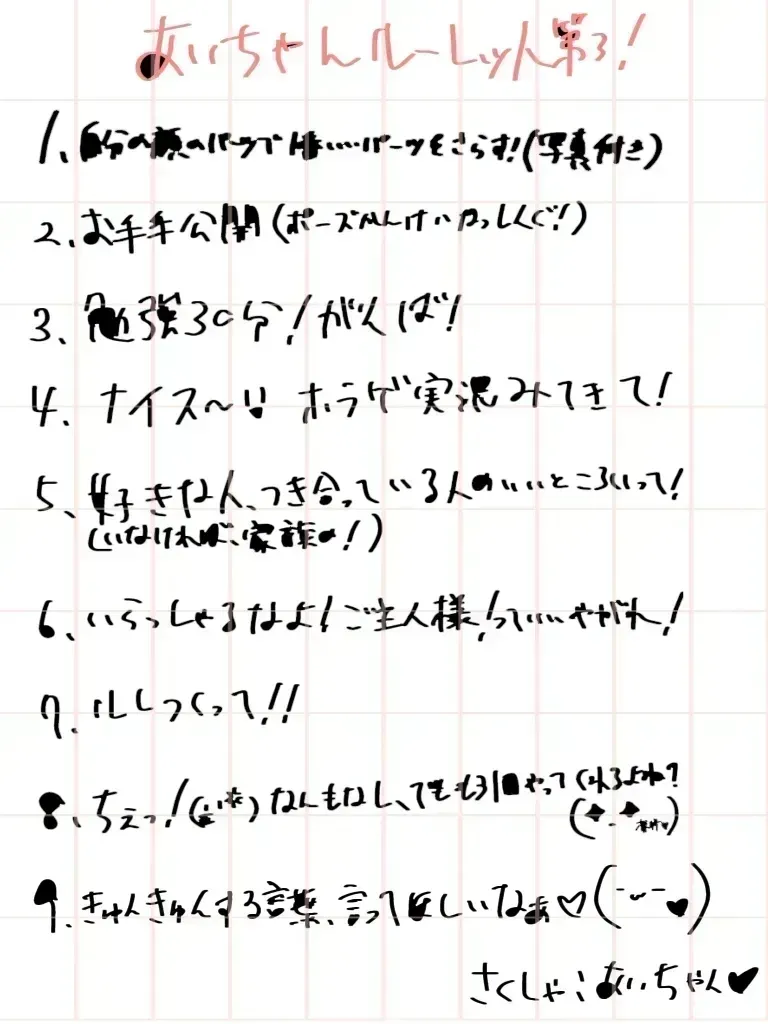 あいちゃんルーレット第3!
1、自分の顔のパーツで1番いいパーツをさらす!(写真付き)
2、お手手公開(ポーズかんけいなっしんぐ!)
3、勉強30分!がんば!
4、ナイス〜!! ホラゲ実況みてきて!
5、好きな人、つき合っている人のいいところいって!
(いなければ、家族の!)
6、いらっしゃるなよ!ご主人様!っていいやがれ!
7、ルしつくって!!
8、ちぇっ! なんもなし、でももう1回やってくれるよね?
9、きゅんきゅんする言葉、言ってほしいなぁ♡(ーωー♥)
さくしゃ:あいちゃん♥